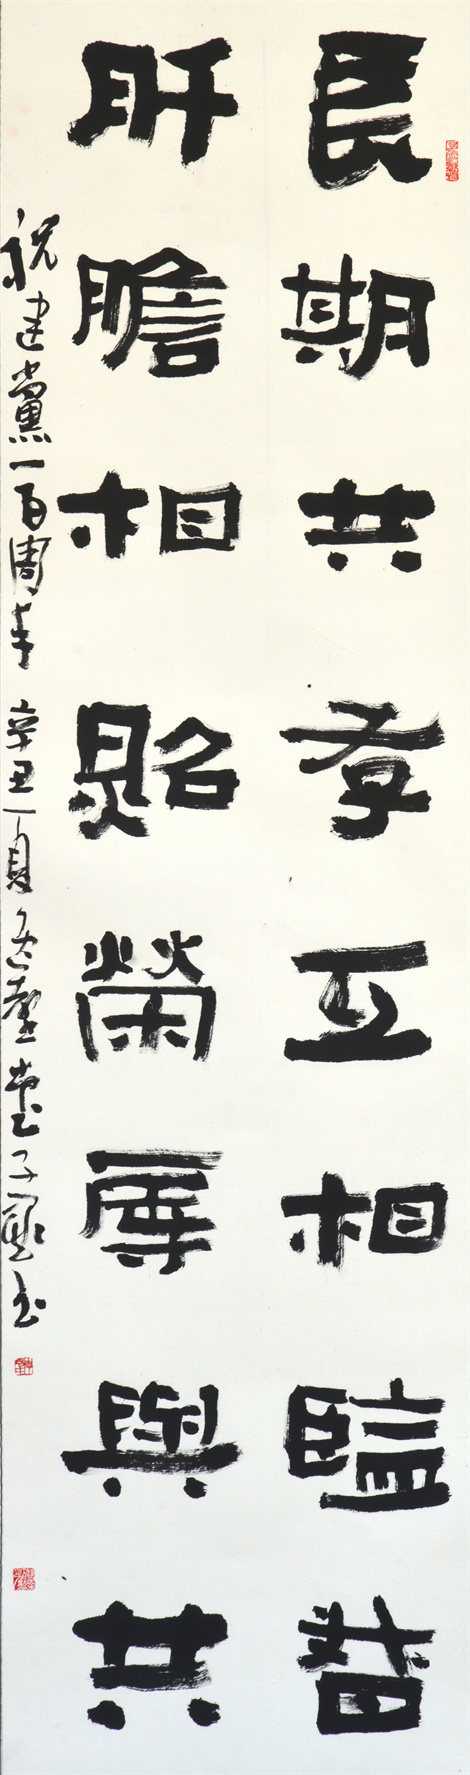 長期共存互相監督
肝膽相照榮辱與共
祝建黨一百周年 辛丑夏